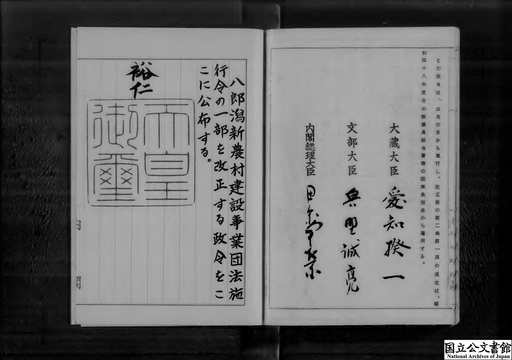 この政令は、公布の日から施行し、改正後の第二条第一項の規定は、昭
和四十八年度分の義務教育費国庫負担金から適用する。
大蔵大臣 愛知揆一
文部大臣 奥野誠亮
内閣総理大臣 田中角榮
八郎潟新農村建設事業団法施
行令の一部を改正する政令をこ
こに公布する。
裕仁
天皇
御璽
内閣
国立公文書館
National Archives of Japan